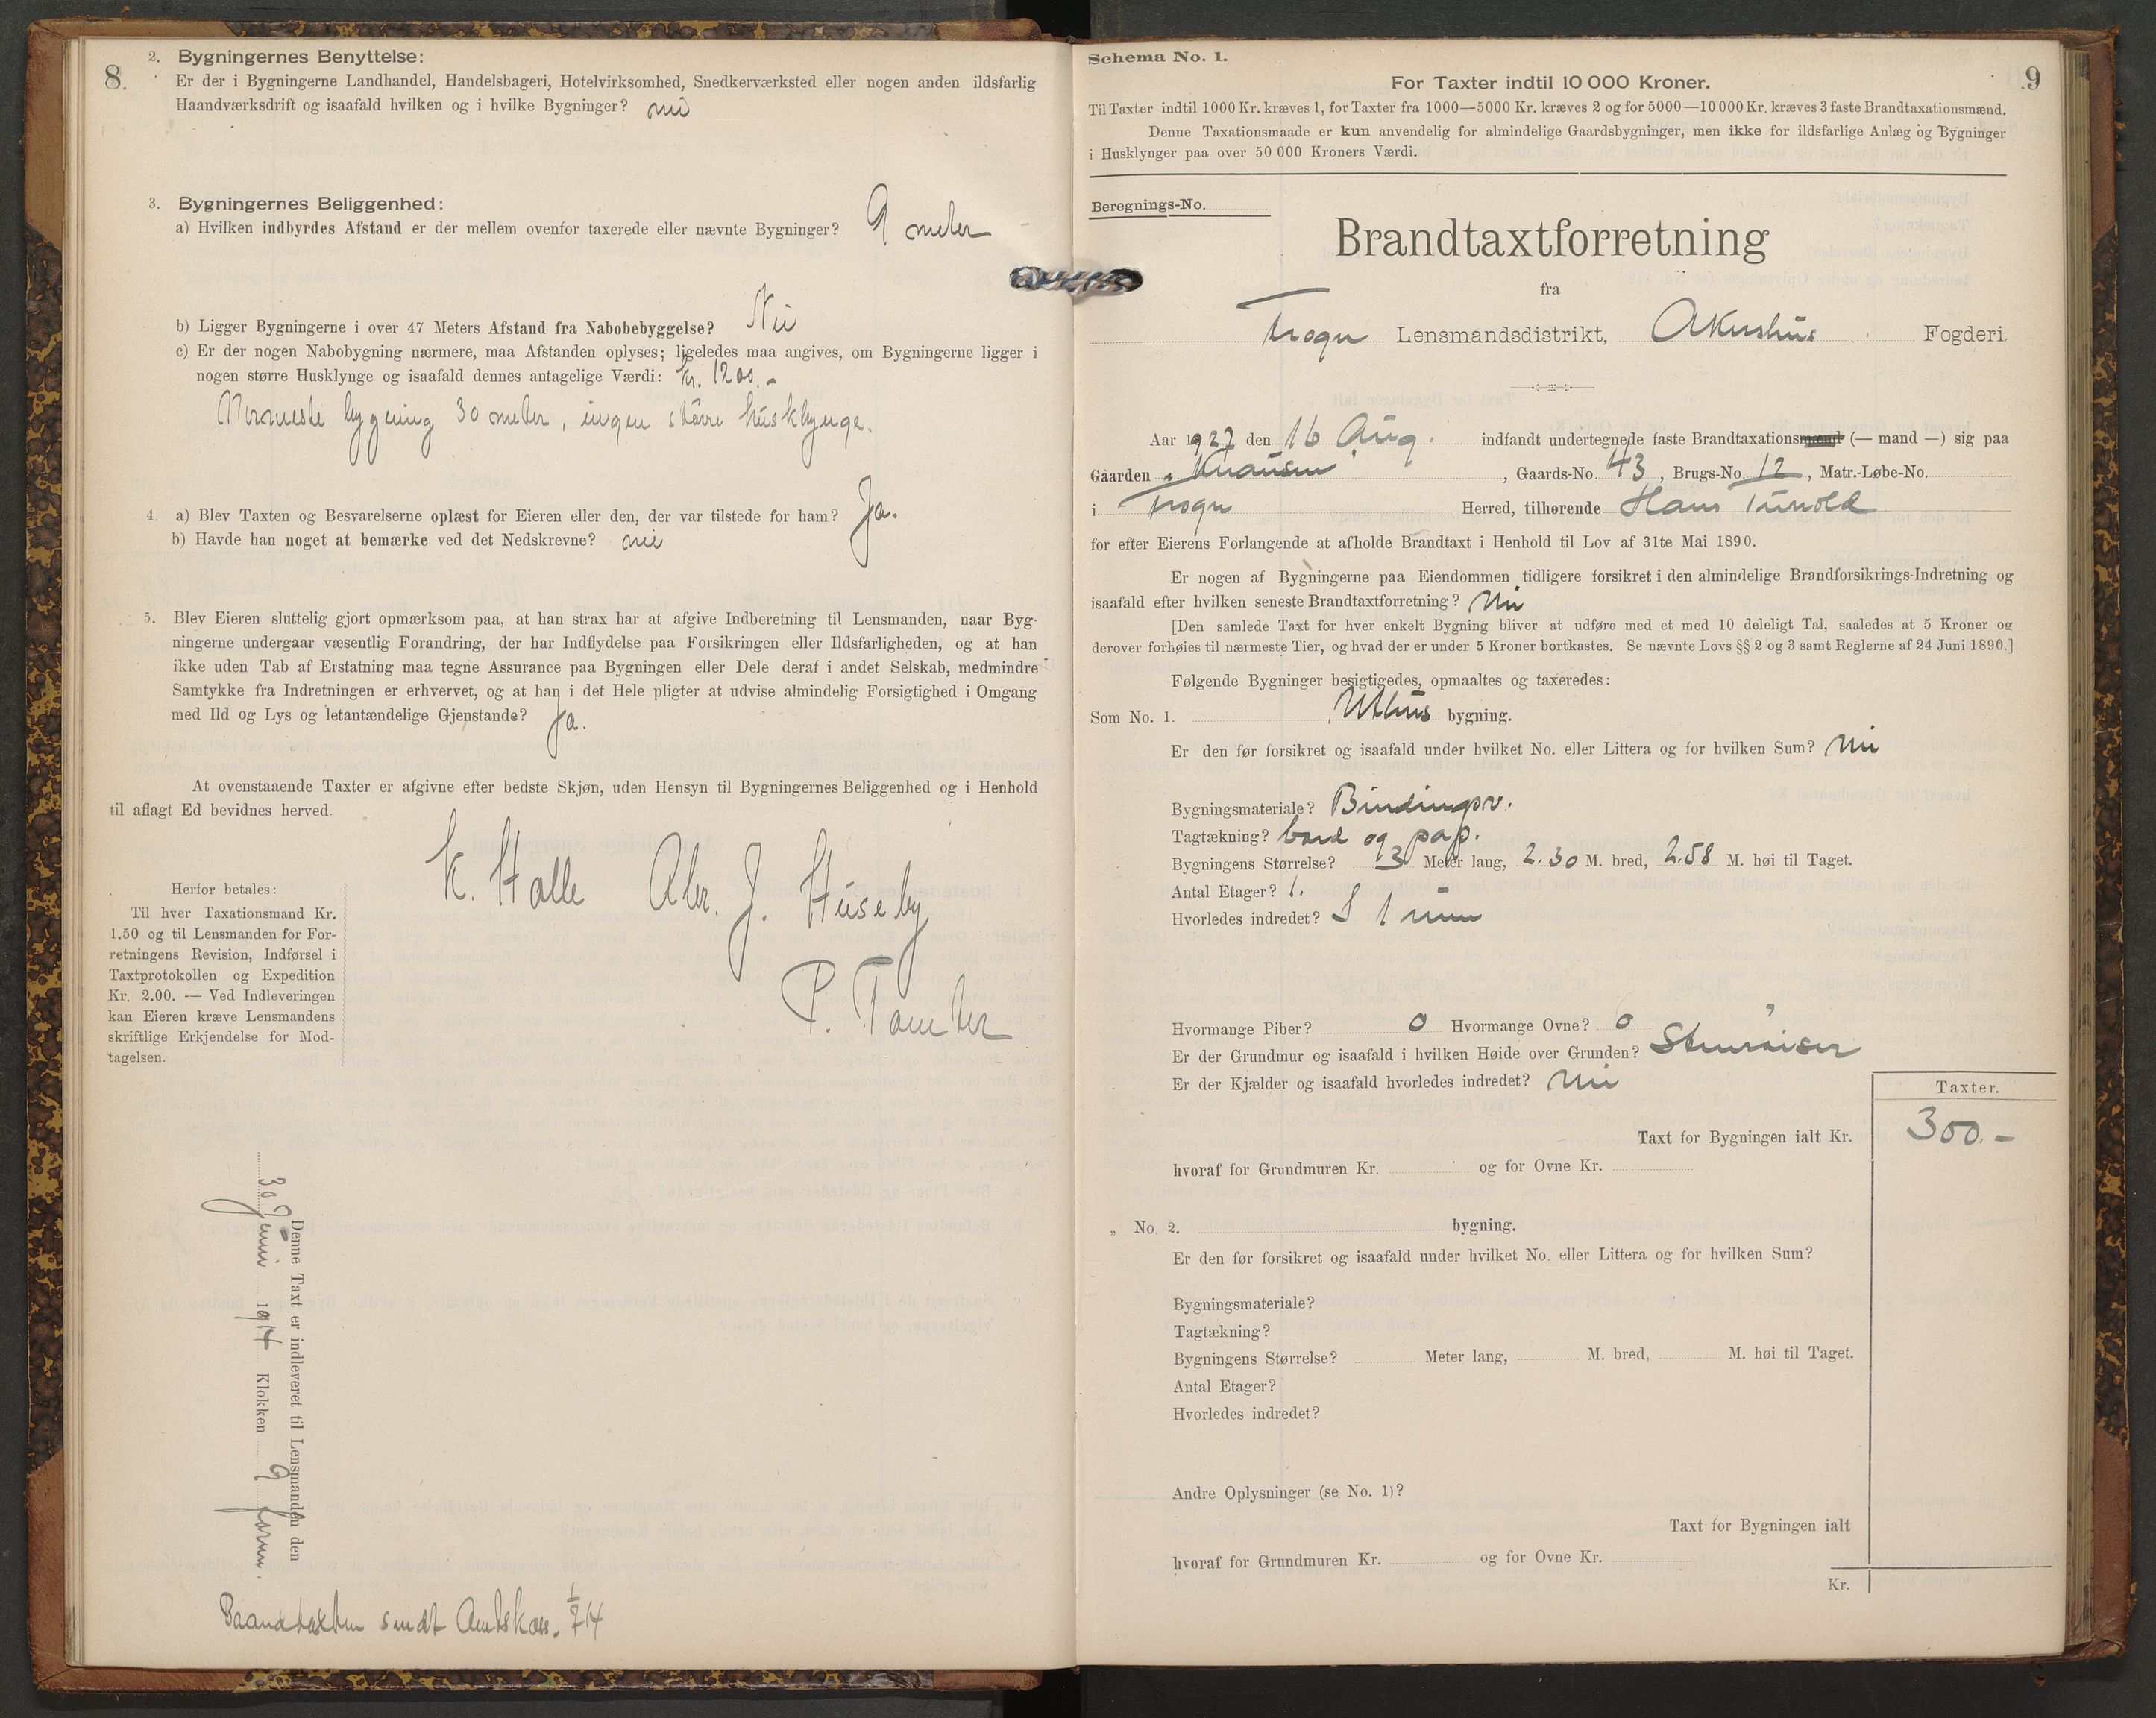 8.
2. Bygningernes Benyttelse:
Er der i Bygningerne Landhandel, Handelsbageri, Hotelvirksomhed, Snedkerværksted eller nogen anden ildsfarlig
Haandværksdrift og isaafald hvilken og i hvilke Bygninger? nei
3. Bygningernes Beliggenhed:
a) Hvilken indbyrdes Afstand er der mellem ovenfor taxerede eller nævnte Bygninger? 9 meter
b) Ligger Bygningerne i over 47 Meters Afstand fra Nabobebyggelse? Nei
c) Er der nogen Nabobygning nærmere, maa Afstanden oplyses; ligeledes maa angives, om Bygningerne ligger i
nogen større Husklynge og isaafald dennes antagelige Værdi: kr. 1200.-
Nærmeste bygning 30 meter, ingen större husklynge.
4. a) Blev Taxten og Besvarelserne oplæst for Eieren eller den, der var tilstede for ham? Ja.
b) Havde han noget at bemærke ved det Nedskrevne? nei
5. Blev Eieren sluttelig gjort opmærksom paa, at han strax har at afgive Indberetning til Lensmanden, naar Byg-
ningerne undergaar væsentlig Forandring, der har Indflydelse paa Forsikringen eller Ildsfarligheden, og at han
ikke uden Tab af Erstatning maa tegne Assurance paa Bygningen eller Dele deraf i andet Selskab, medmindre
Samtykke fra Indretningen er erhvervet, og at han i det Hele pligter at udvise almindelig Forsigtighed i Omgang
med Ild og Lys og letantændelige Gjenstande? Ja.
At ovenstaaende Taxter er afgivne efter bedste Skjøn, uden Hensyn til Bygningernes Beliggenhed og i Henhold
til aflagt Ed bevidnes herved.
K. Halle Abr. J. Huseby
P. Tomter
Herfor betales:
Til hver Taxationsmand Kr.
1.50 og til Lensmanden for For-
retningens Revision, Indførsel i
Taxtprotokollen og Expedition
Kr. 2.00. — Ved Indleveringen
kan Eieren kræve Lensmandens
skriftlige Erkjendelse for Mod-
tagelsen.
Denne Taxt er indleveret til Lensmanden den
30 Juni 1914 Klokken 9 form.
Brandtaxten sendt Amtskass. 1/7 14
9
Schema No. 1.
For Taxter indtil 10 000 Kroner.
Til Taxter indtil 1000 Kr. kræves 1, for Taxter fra 1000—5000 Kr. kræves 2 og for 5000—10 000 Kr. kræves 3 faste Brandtaxationsmænd.
Denne Taxationsmaade er kun anvendelig for almindelige Gaardsbygninger, men ikke for ildsfarlige Anlæg og Bygninger
i Husklynger paa over 50 000 Kroners Værdi.
Beregnings-No.
Brandtaxtforretning
fra
Frogn Lensmandsdistrikt, Akershus Fogderi.
Aar 1927 den 16 Aug. indfandt undertegnede faste Brandtaxationsmænd (— mand —) sig paa
Gaarden Knausen, Gaards-No. 43, Brugs-No. 12, Matr.-Løbe-No.
i Frogn Herred, tilhørende Hans
for efter Eierens Forlangende at afholde Brandtaxt i Henhold til Lov af 31te Mai 1890.
Er nogen af Bygningerne paa Eiendommen tidligere forsikret i den almindelige Brandforsikrings-Indretning og
isaafald efter hvilken seneste Brandtaxtforretning? Nei
[Den samlede Taxt for hver enkelt Bygning bliver at udføre med et med 10 deleligt Tal, saaledes at 5 Kroner og
derover forhøies til nærmeste Tier, og hvad der er under 5 Kroner bortkastes. Se nævnte Lovs §§ 2 og 3 samt Reglerne af 24 Juni 1890.]
Følgende Bygninger besigtigedes, opmaaltes og taxeredes:
Som No. 1. Uthus bygning.
Er den før forsikret og isaafald under hvilket No. eller Littera og for hvilken Sum? Nei
Bygningsmateriale? Bindingsv.
Tagtækning? bord og pap.
Bygningens Størrelse? 3 Meter lang, 2.30 M. bred, 2.58 M. høi til Taget.
Antal Etager? 1.
Hvorledes indredet? I 1 rum
Hvormange Piber? 0 Hvormange Ovne? 0
Er der Grundmur og isaafald i hvilken Høide over Grunden?
Er der Kjælder og isaafald hvorledes indredet? Nei
Taxter.
Taxt for Bygningen ialt Kr. 300.-
hvoraf for Grundmuren Kr. og for Ovne Kr.
„ No. 2. bygning.
Er den før forsikret og isaafald under hvilket No. eller Littera og for hvilken Sum?
Bygningsmateriale?
Tagtækning?
Bygningens Størrelse? Meter lang, M. bred, M. høi til Taget.
Antal Etager?
Hvorledes indredet?
Andre Oplysninger (se No. 1)?
Taxt for Bygningen ialt
hvoraf for Grundmuren Kr. og for Ovne Kr.
Kr.